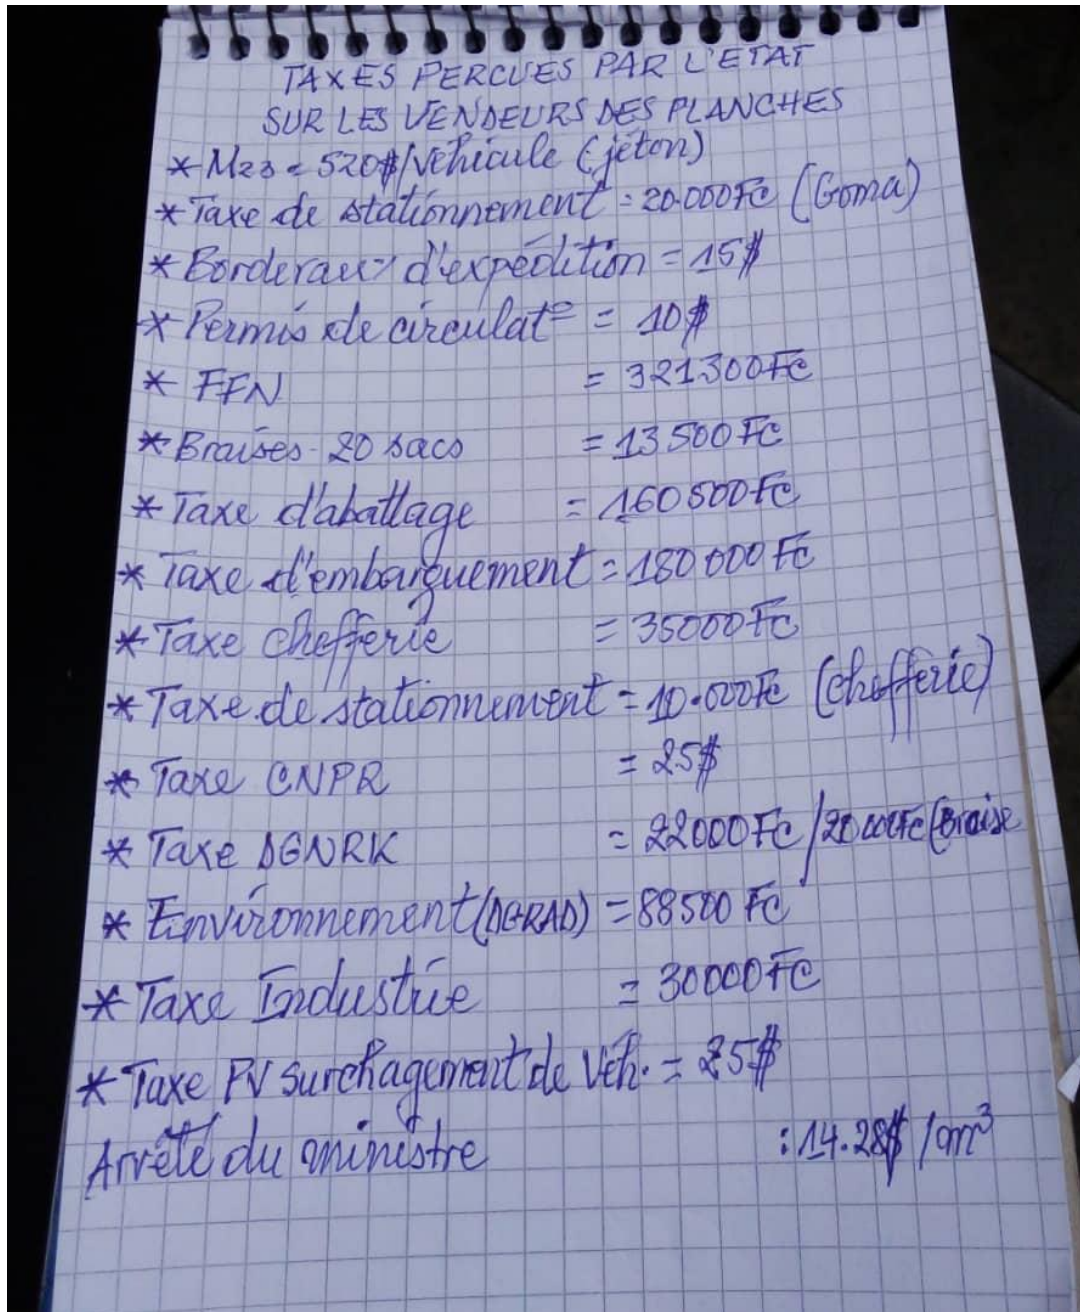 TAXES PERCUES PAR L'ETAT
SUR LES VENDEURS DES PLANCHES
* M23 = 520$/Véhicule (jéton)
* Taxe de stationnement = 20.000Fc (Goma)
* Bordereaux d'expédition = 15$
* Permis de circulat° = 10$
* FFN = 321.300Fc
* Braises - 20 sacs = 13500 Fc
* Taxe d'abattage = 160500Fc
* Taxe d'embarquement = 180000 Fc
* Taxe chefferie = 35000Fc
* Taxe de stationnement = 10.000Fc (chefferie)
* Taxe CNPR = 25$
* Taxe DGNRK = 22000Fc/20000Fc (Braise
* Environnement (DGRAD) = 88500 Fc
* Taxe Industrie = 30000Fc
* Taxe PV surchagement de Véh. = 25$
Arrêté du ministre : 14.28$ /m³